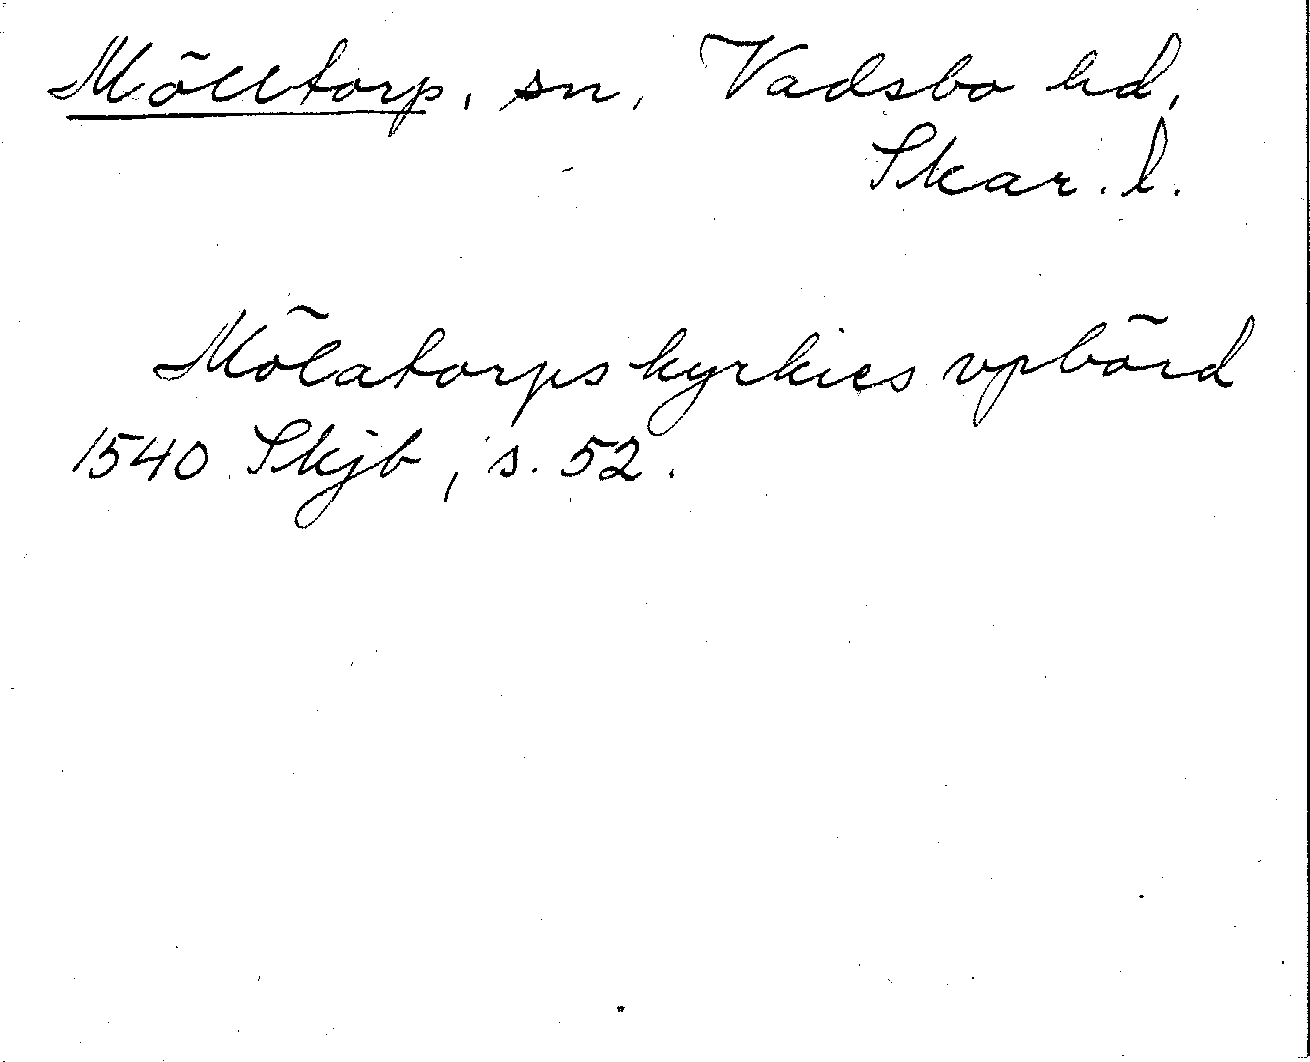 Mölltorp, sn, Vadsbo hd,
Skar. l.
Mölatorps kyrkies vpbörd
1540 Skjb, s. 52.